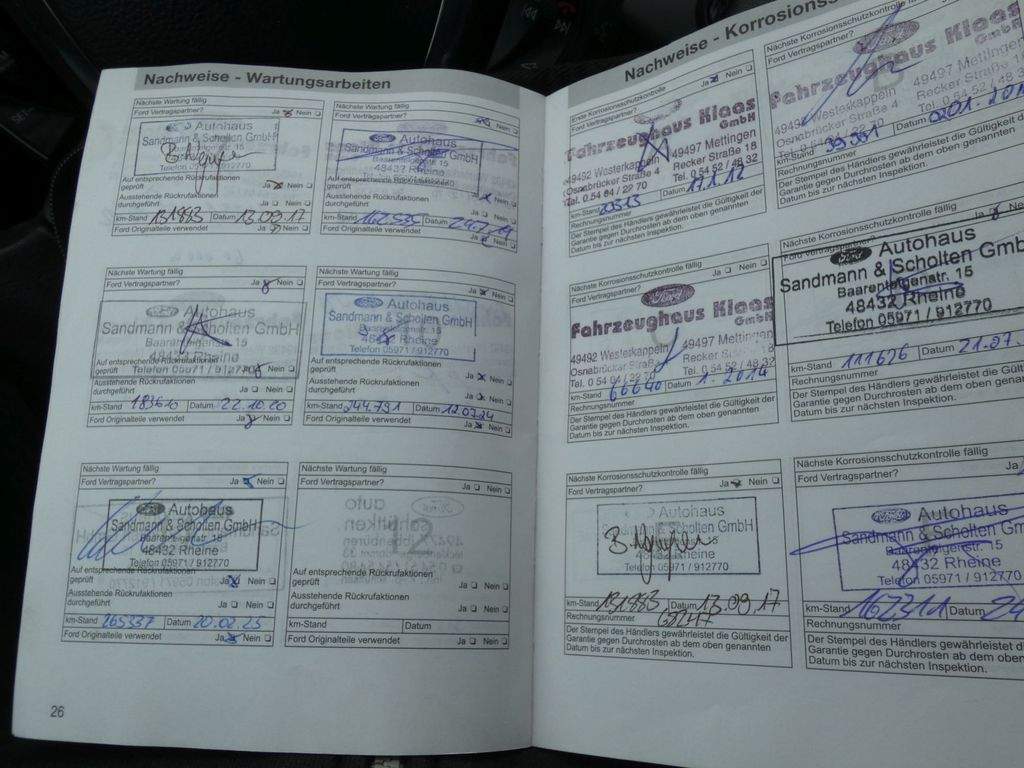 Nachweise - Wartungsarbeiten
Nächste Wartung fällig
Ford Vertragspartner? Ja Nein
Autohaus
Sandmann & Scholten GmbH
Telefon 05971 / 912770
Auf entsprechende Rückrufaktionen
geprüft Ja Nein
Ausstehende Rückrufaktionen
durchgeführt Ja Nein
km-Stand 131883 Datum 13.09.17
Ford Originalteile verwendet Ja Nein
Autohaus
Sandmann & Scholten GmbH
Baarentelgenstr. 15
48432 Rheine
Telefon 05971 / 912770
Auf entsprechende Rückrufaktionen
geprüft Ja Nein
Ausstehende Rückrufaktionen
durchgeführt Ja Nein
km-Stand Datum
Ford Originalteile verwendet Ja Nein
Nächste Wartung fällig
Ford Vertragspartner? Ja Nein
Autohaus
Sandmann & Scholten GmbH
Baarentelgenstr. 15
48432 Rheine
Telefon 05971 / 912770
Auf entsprechende Rückrufaktionen
geprüft
Ausstehende Rückrufaktionen
durchgeführt Ja Nein
km-Stand 183610 Datum 22.10.20
Ford Originalteile verwendet Ja Nein
Nächste Wartung fällig
Ford Vertragspartner? Ja Nein
Autohaus
Sandmann & Scholten GmbH
Baarentelgenstr. 15
48432 Rheine
Telefon 05971 / 912770
Auf entsprechende Rückrufaktionen
geprüft Ja Nein
Ausstehende Rückrufaktionen
durchgeführt Ja Nein
km-Stand 244.791 Datum 12.07.24
Ford Originalteile verwendet Ja Nein
Nächste Wartung fällig
Ford Vertragspartner? Ja Nein
Autohaus
Sandmann & Scholten GmbH
Baarentelgenstr. 15
48432 Rheine
Telefon 05971 / 912770
Auf entsprechende Rückrufaktionen
geprüft Ja Nein
Ausstehende Rückrufaktionen
durchgeführt Ja Nein
km-Stand 265337 Datum 20.02.25
Ford Originalteile verwendet Ja Nein
Nächste Wartung fällig
Ford Vertragspartner? Ja Nein
Auf entsprechende Rückrufaktionen
geprüft Ja Nein
Ausstehende Rückrufaktionen
durchgeführt Ja Nein
km-Stand Datum
Ford Originalteile verwendet Ja Nein
26
Nachweise - Korrosionss
Erste Korrosionsschutzkontrolle
Ford Vertragspartner? Ja Nein
Fahrzeughaus Klaas
GmbH
49492 Westerkappeln 49497 Mettingen
Osnabrücker Straße 4 Recker Straße 18
Tel. 0 54 04 / 29 70 Tel. 0 54 52 / 48 32
km-Stand 20313 Datum 17.1.12
Rechnungsnummer
Der Stempel des Händlers gewährleistet die Gültigkeit der
Garantie gegen Durchrosten ab dem oben genannten
Datum bis zur nächsten Inspektion.
Nächste Korrosionsschutzkontrolle fällig
Ford Vertragspartner?
Fahrzeughaus Klaas
GmbH
49492 Westerkappeln 49497 Mettingen
Osnabrücker Straße 4 Recker Straße 18
Tel. 0 54 52 / 48 3
km-Stand Datum
Rechnungsnummer
Der Stempel des Händlers gewährleistet die Gültigkeit d
Garantie gegen Durchrosten ab dem oben genannten
Datum bis zur nächsten Inspektion.
Nächste Korrosionsschutzkontrolle fällig
Ford Vertragspartner? Ja Nein
Ford
Fahrzeughaus Klaas
GmbH
49492 Westerkappeln 49497 Mettingen
Osnabrücker Straße Recker Straße
km-Stand 66640 Datum 1. 2014
Rechnungsnummer
Der Stempel des Händlers gewährleistet die Gültigkeit der
Garantie gegen Durchrosten ab dem oben genannten
Datum bis zur nächsten Inspektion.
Nächste Korrosionsschutzkontrolle fällig
Ja Nein
Ford Autohaus
Sandmann & Scholten GmbH
Baarentelgenstr. 15
48432 Rheine
Telefon 05971 / 912770
km-Stand 111626 Datum 21.07.
Rechnungsnummer
Der Stempel des Händlers gewährleistet die Gültigkei
Garantie gegen Durchrosten ab dem oben genannten
Datum bis zur nächsten Inspektion.
Nächste Korrosionsschutzkontrolle fällig
Ford Vertragspartner? Ja Nein
Autohaus
Sandmann & Scholten GmbH
48432 Rheine
Telefon 05971 / 912770
km-Stand 131883 Datum 13.09.17
Rechnungsnummer
Der Stempel des Händlers gewährleistet die Gültigkeit der
Garantie gegen Durchrosten ab dem oben genannten
Datum bis zur nächsten Inspektion.
Nächste Korrosionsschutzkontrolle fällig
Ford Vertragspartner? Ja
Autohaus
Sandmann & Scholten GmbH
Baarentelgenstr. 15
48432 Rheine
Telefon 05971 / 912770
km-Stand 162311 Datum
Rechnungsnummer
Der Stempel des Händlers gewährleistet die Gültigk
Garantie gegen Durchrosten ab dem oben genannte
Datum bis zur nächsten Inspektion.